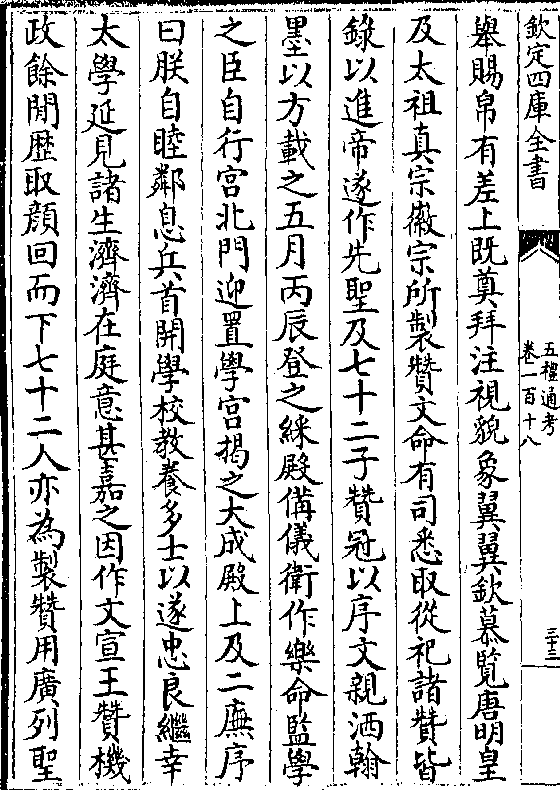 欽定四庫全書
五禮通考
卷一百十八
三十三
舉賜帛有差上既奠拜注視貌象翼翼欽慕覽唐明皇
及太祖真宗徽宗所製贊文命有司悉取從祀諸贊皆
錄以進帝遂作先聖及七十二子贊冠以序文親洒翰
墨以方載之五月丙辰登之綵殿備儀衛作樂命監學
之臣自行宮北門迎置學宮揭之大成殿上及二廡序
曰朕自睦鄰息兵首開學校教養多士以遂忠良繼幸
太學延見諸生濟濟在庭意甚嘉之因作文宣王贊機
政餘閒歴取顔回而下七十二人亦為製贊用廣列聖